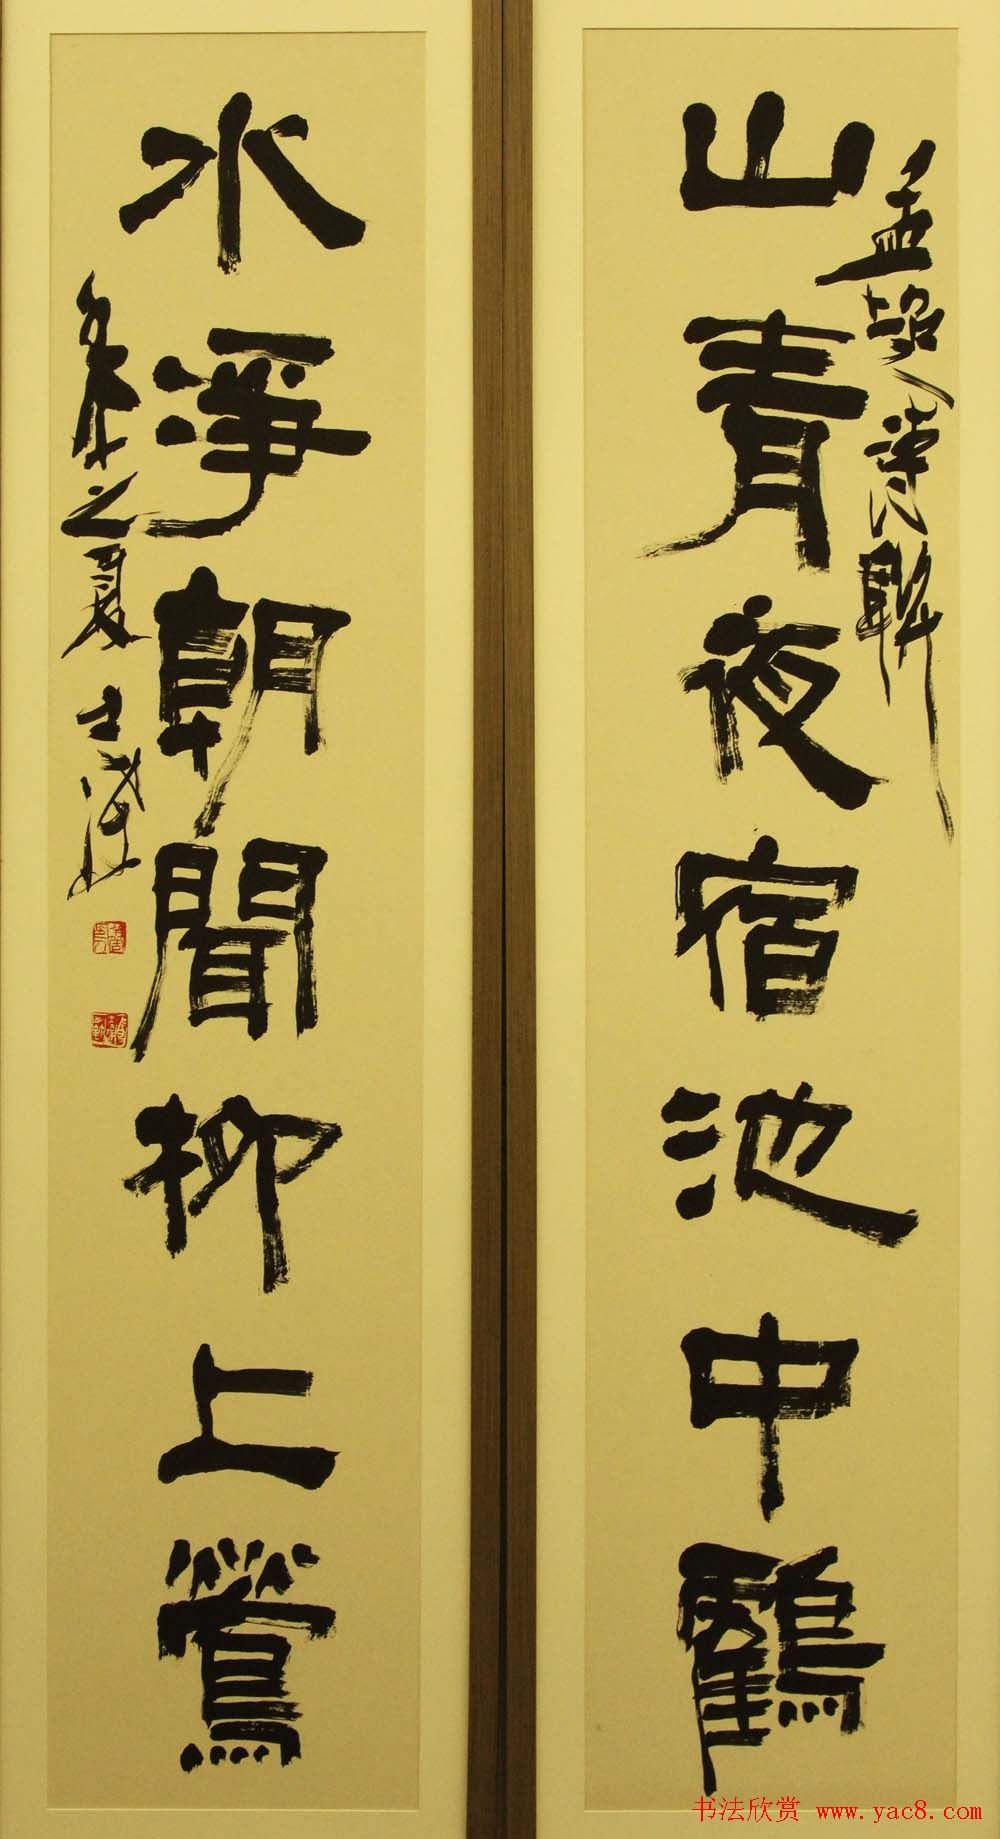 山青夜宿池中鶴
詩聯
水淨朝聞柳上鶯
之夏 士
书法欣赏 www.yac8.com